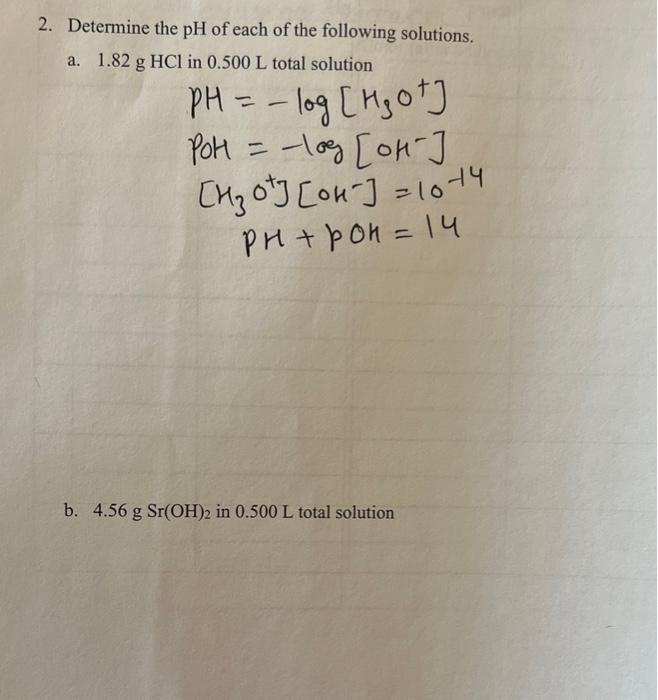 2. Determine the pH of each of the following solutions.
a. 1.82 g HCl in 0.500 L total solution
pH = - log [H₃O⁺]
POH = -log [OH⁻]
[H₃O⁺] [OH⁻] = 10⁻¹⁴
PH + POH = 14
b. 4.56 g Sr(OH)₂ in 0.500 L total solution